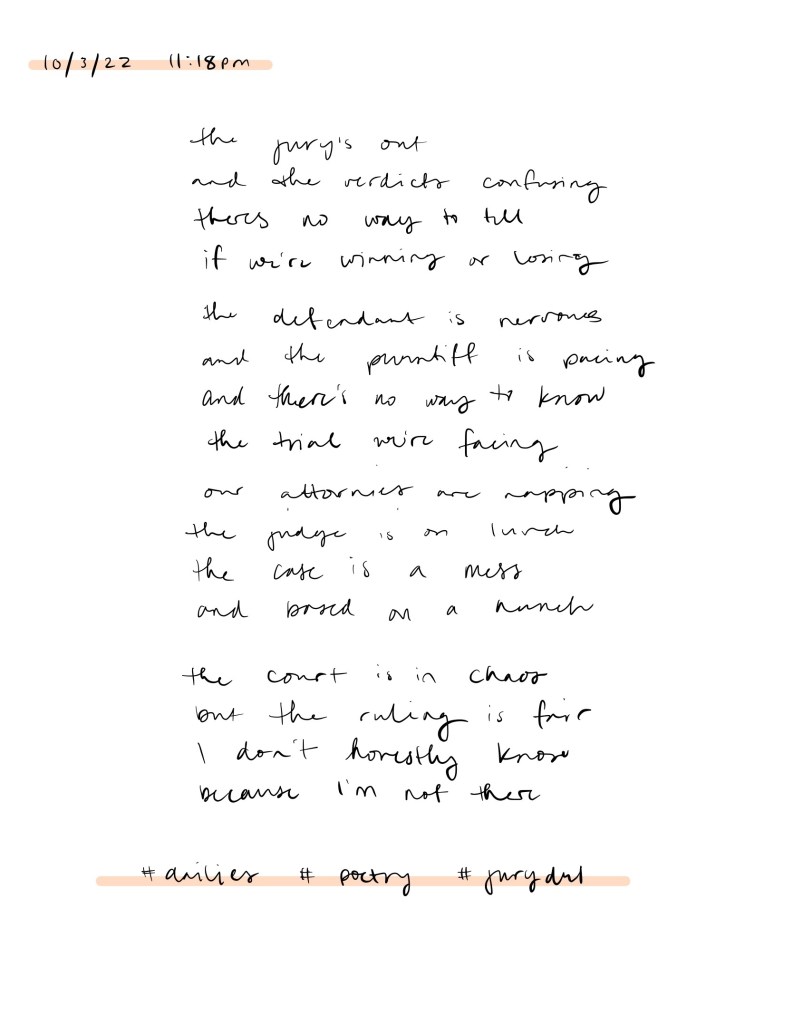 10/3/22 11:18pm
the jury's out
and the verdicts confusing
theres no way to tell
if we're winning or losing
the defendant is nervous
and the is pacing
and there's no way to know
the trial we're facing
our attornies are napping
the judge is on lunch
the case is a mess
and based on a hunch
the court is in chaos
but the ruling is fair
I don't honestly know
because I'm not there
#dailies #poetry